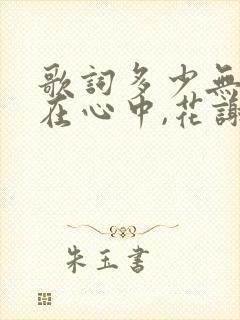 歌詞多少無
在心中,花謝
朱玉書